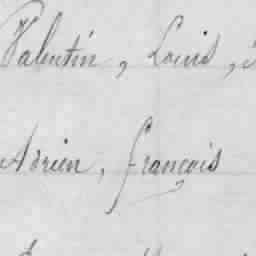 Valentin, Louis,
Adrien, françois